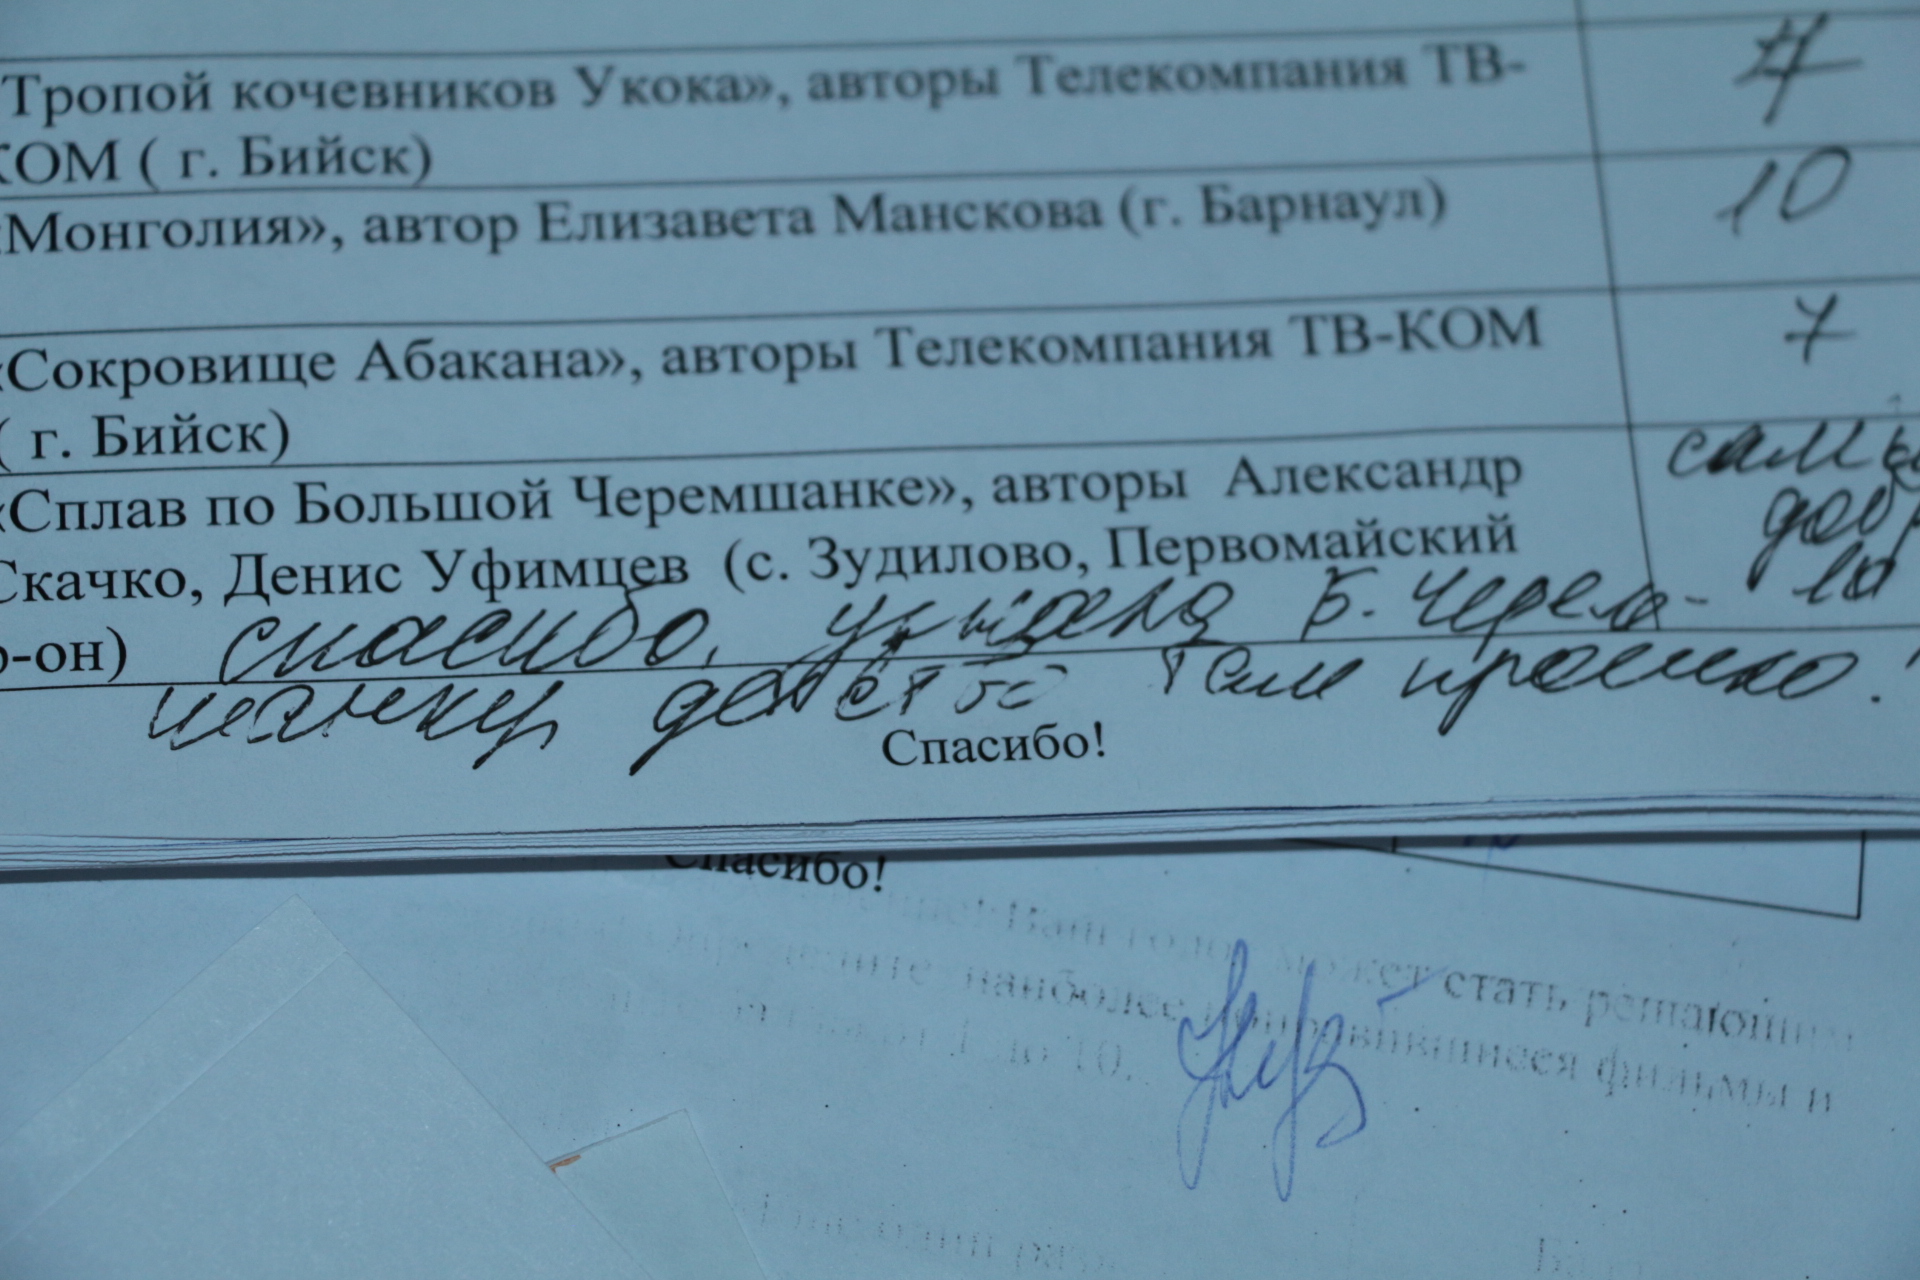 Тропой кочевников Укока», авторы Телекомпания ТВ-
КОМ ( г. Бийск)
7
«Монголия», автор Елизавета Манскова (г. Барнаул)
10
«Сокровище Абакана», авторы Телекомпания ТВ-КОМ
( г. Бийск)
7
«Сплав по Большой Черемшанке», авторы Александр
Скачко, Денис Уфимцев (с. Зудилово, Первомайский
р-он)
самы
добр
10
спасибо, увидела Б. Черем-
шанку детство там прошло!
Спасибо!
Спасибо!
Ваш голос может стать решающим
наиболее понравившиеся фильмы и
1 до 10.